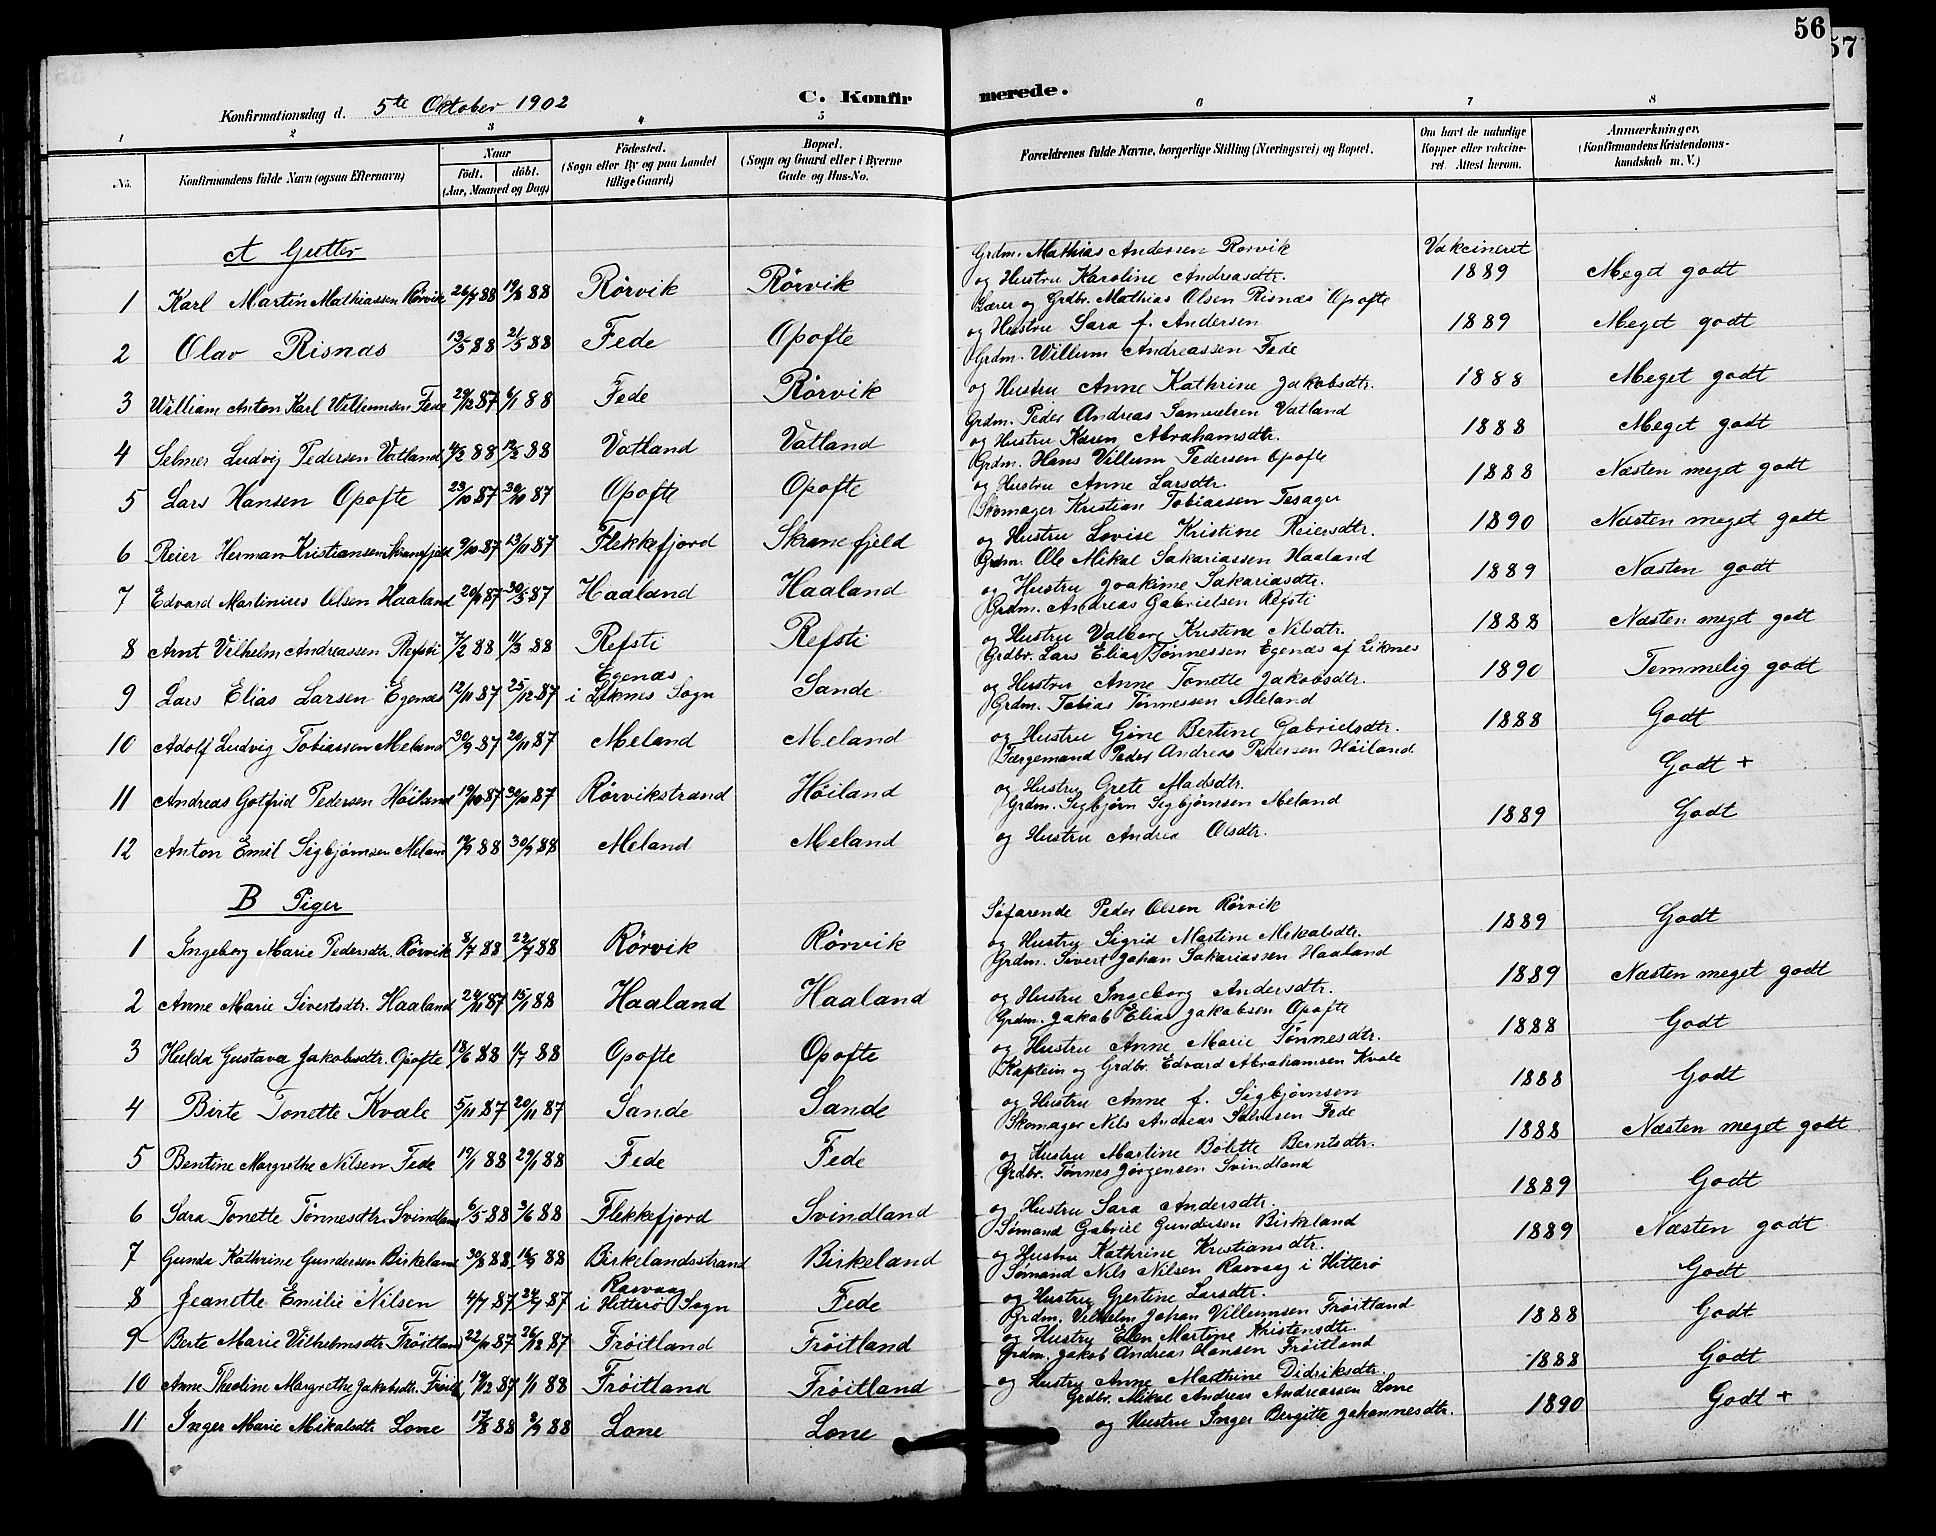 56
57
Konfirmationsdag d. 5te Oktober 1902
C. Konfirmerede.
1 2 3 4 5 6 7 8
No.
Konfirmandens fulde Navn (ogsaa Efternavn)
Naar
födt. döbt.
(Aar, Maaned og Dag)
Födested.
(Sogn eller By og paa Landet
tillige Gaard)
Bopæl.
(Sogn og Gaard eller i Byerne
Gade og Hus-No.
Forældrenes fulde Navne, borgerlige Stilling (Næringsvei) og Bopæl.
Om havt de naturlige
Kopper eller vakcine-
ret. Attest herom.
Anmærkninger.
(Konfirmandens Kristendoms-
kundskab m. V.)
A Gutter
Grdm. Mathias Andersen Rørvik Vakcineret
1 Karl Martin Mathiassen Rörvik 26/7 88 19/8 88 Rörvik Rörvik og Hustru Karoline Andreasdtr. 1889 Meget godt
Lærer og Grdbr. Mathias Olsen Risnæs Opofte
2 Olav Risnæs 13/5 88 21/5 88 Fede Opofte og Hustru Sara f. Andersen 1889 Meget godt
Grdm. Willum Andreassen Fede
3 William Anton Karl Willumsen Fede 29/12 87 6/1 88 Fede Rörvik og Hustru Anne Kathrine Jakobsdtr. 1888 Meget godt
Grdm. Peder Andreas Samuelsen Vatland
4 Selmer Ludvig Pedersen Vatland 4/2 88 12/2 88 Vatland Vatland og Hustru Karen Abrahamsdtr. 1888 Meget godt
Grdm. Hans Villum Pedersen Opofte
5 Lars Hansen Opofte 23/10 87 30/10 87 Opofte Opofte og Hustru Anne Larsdtr. 1888 Næsten meget godt
Skomager Kristian Tobiassen Tesager
6 Reier Herman Kristiansen Skranefjeld 9/10 87 13/11 87 Flekkefjord Skranefjeld og Hustru Lovise Kristine Reiersdtr. 1890 Næsten meget godt
Grdm. Ole Mikal Sakariassen Haaland
7 Edvard Martinius Olsen Haaland 87 30/5 87 Haaland Haaland og Hustru Joakime Sakariasdtr. 1889 Næsten godt
Grdm. Andreas Gabrielsen Refsti
8 Arnt Vilhelm Andreassen Refsti 7/2 88 11/3 88 Refsti Refsti og Hustru Valborg Kristine Nilsdtr. 1888 Næsten meget godt
Grdbr. Lars Elias Tønnessen Egenæs af Liknes
9 Lars Elias Larsen Egenæs 12/11 87 25/12 87 Egenæs i Liknes Sogn Sande og Hustru Anne Tonette Jakobsdtr. 1890 Temmelig godt
Grdm. Tobias Tønnessen Meland
10 Adolf Ludvig Tobiassen Meland 30/9 87 20/11 87 Meland Meland og Hustru Gine Bertine Gabrielsdtr. 1888 Godt
Færgemand Peder Andreas Pedersen Höiland
11 Andreas Gotfrid Pedersen Höiland 19/10 87 30/10 87 Rörvikstrand Höiland og Hustru Grete Madsdtr. Godt +
Grdm. Sigbjørn Sigbjørnsen Meland
12 Anton Emil Sigbjørnsen Meland 19/9 88 30/9 88 Meland Meland og Hustru Andrea Olsdtr. 1889 Godt
B Piger
Søfarende Peder Olsen Rörvik
1 Ingeborg Marie Pedersdtr. Rörvik 8/7 88 88 Rörvik Rörvik og Hustru Sigrid Martine Mikalsdtr. 1889 Godt
Grdm. Sivert Johan Sakariassen Haaland
2 Anne Marie Sivertsdtr. Haaland 24/11 87 15/1 88 Haaland Haaland og Hustru Ingeborg Andersdtr. 1889 Næsten meget godt
Grdm. Jakob Elias Jakobsen Opofte
3 Hulda Gustava Jakobsdtr. Opofte 18/6 88 1/7 88 Opofte Opofte og Hustru Anne Marie Tønnesdtr. 1888 Godt
Kaptein og Grdbr. Edvard Abrahamsen Kvale
4 Birte Tonette Kvale 5/11 87 20/11 87 Sande Sande og Hustru Anne f. Sigbjørnsen 1888 Godt
Skomager Nils Andreas Salvesen Fede
5 Bentine Margrethe Nilsen Fede 19/1 88 29/1 88 Fede Fede og Hustru Martine Bolette Berntsdtr. 1888 Næsten meget godt
Grdbr. Tønnes Jørgensen Svindland
6 Sara Tonette Tönnesdtr. Svindland 6/5 88 3/6 88 Flekkefjord Svindland og Hustru Sara Andersdtr. 1889 Godt
Sømand Gabriel Gundersen Birkeland
7 Gunda Kathrine Gundersen Birkeland 30/8 88 16/9 88 Birkelandsstrand Birkeland og Hustru Kathrine Kristiansdtr. 1889 Næsten godt
Sømand Nils Nilsen Rasvaag i Hitterø
8 Jeanette Emilie Nilsen 4/7 87 24/7 87 Rasvaag i Hitterø Sogn Fede og Hustru Gjertine Larsdtr. Godt
Grdm. Vilhelm Johan Villumsen Fröitland
9 Berte Marie Vilhelmsdtr. Fröitland 22/11 87 26/12 87 Fröitland Fröitland og Hustru Elen Martine Kristensdtr. 1888 Godt
Grdm. Jakob Andreas Hansen Fröitland
10 Anne Theoline Margrethe Jakobsdtr. Fröitl 19/12 87 1/1 88 Fröitland Fröitland og Hustru Anne Marthine Didriksdtr. 1888 Godt
Grdbr. Mikal Andreas Andreassen Lone
11 Inger Marie Mikalsdtr Lone 17/8 88 2/9 88 Lone Lone og Hustru Inger Bergitte Johannesdtr. 1890 Godt +